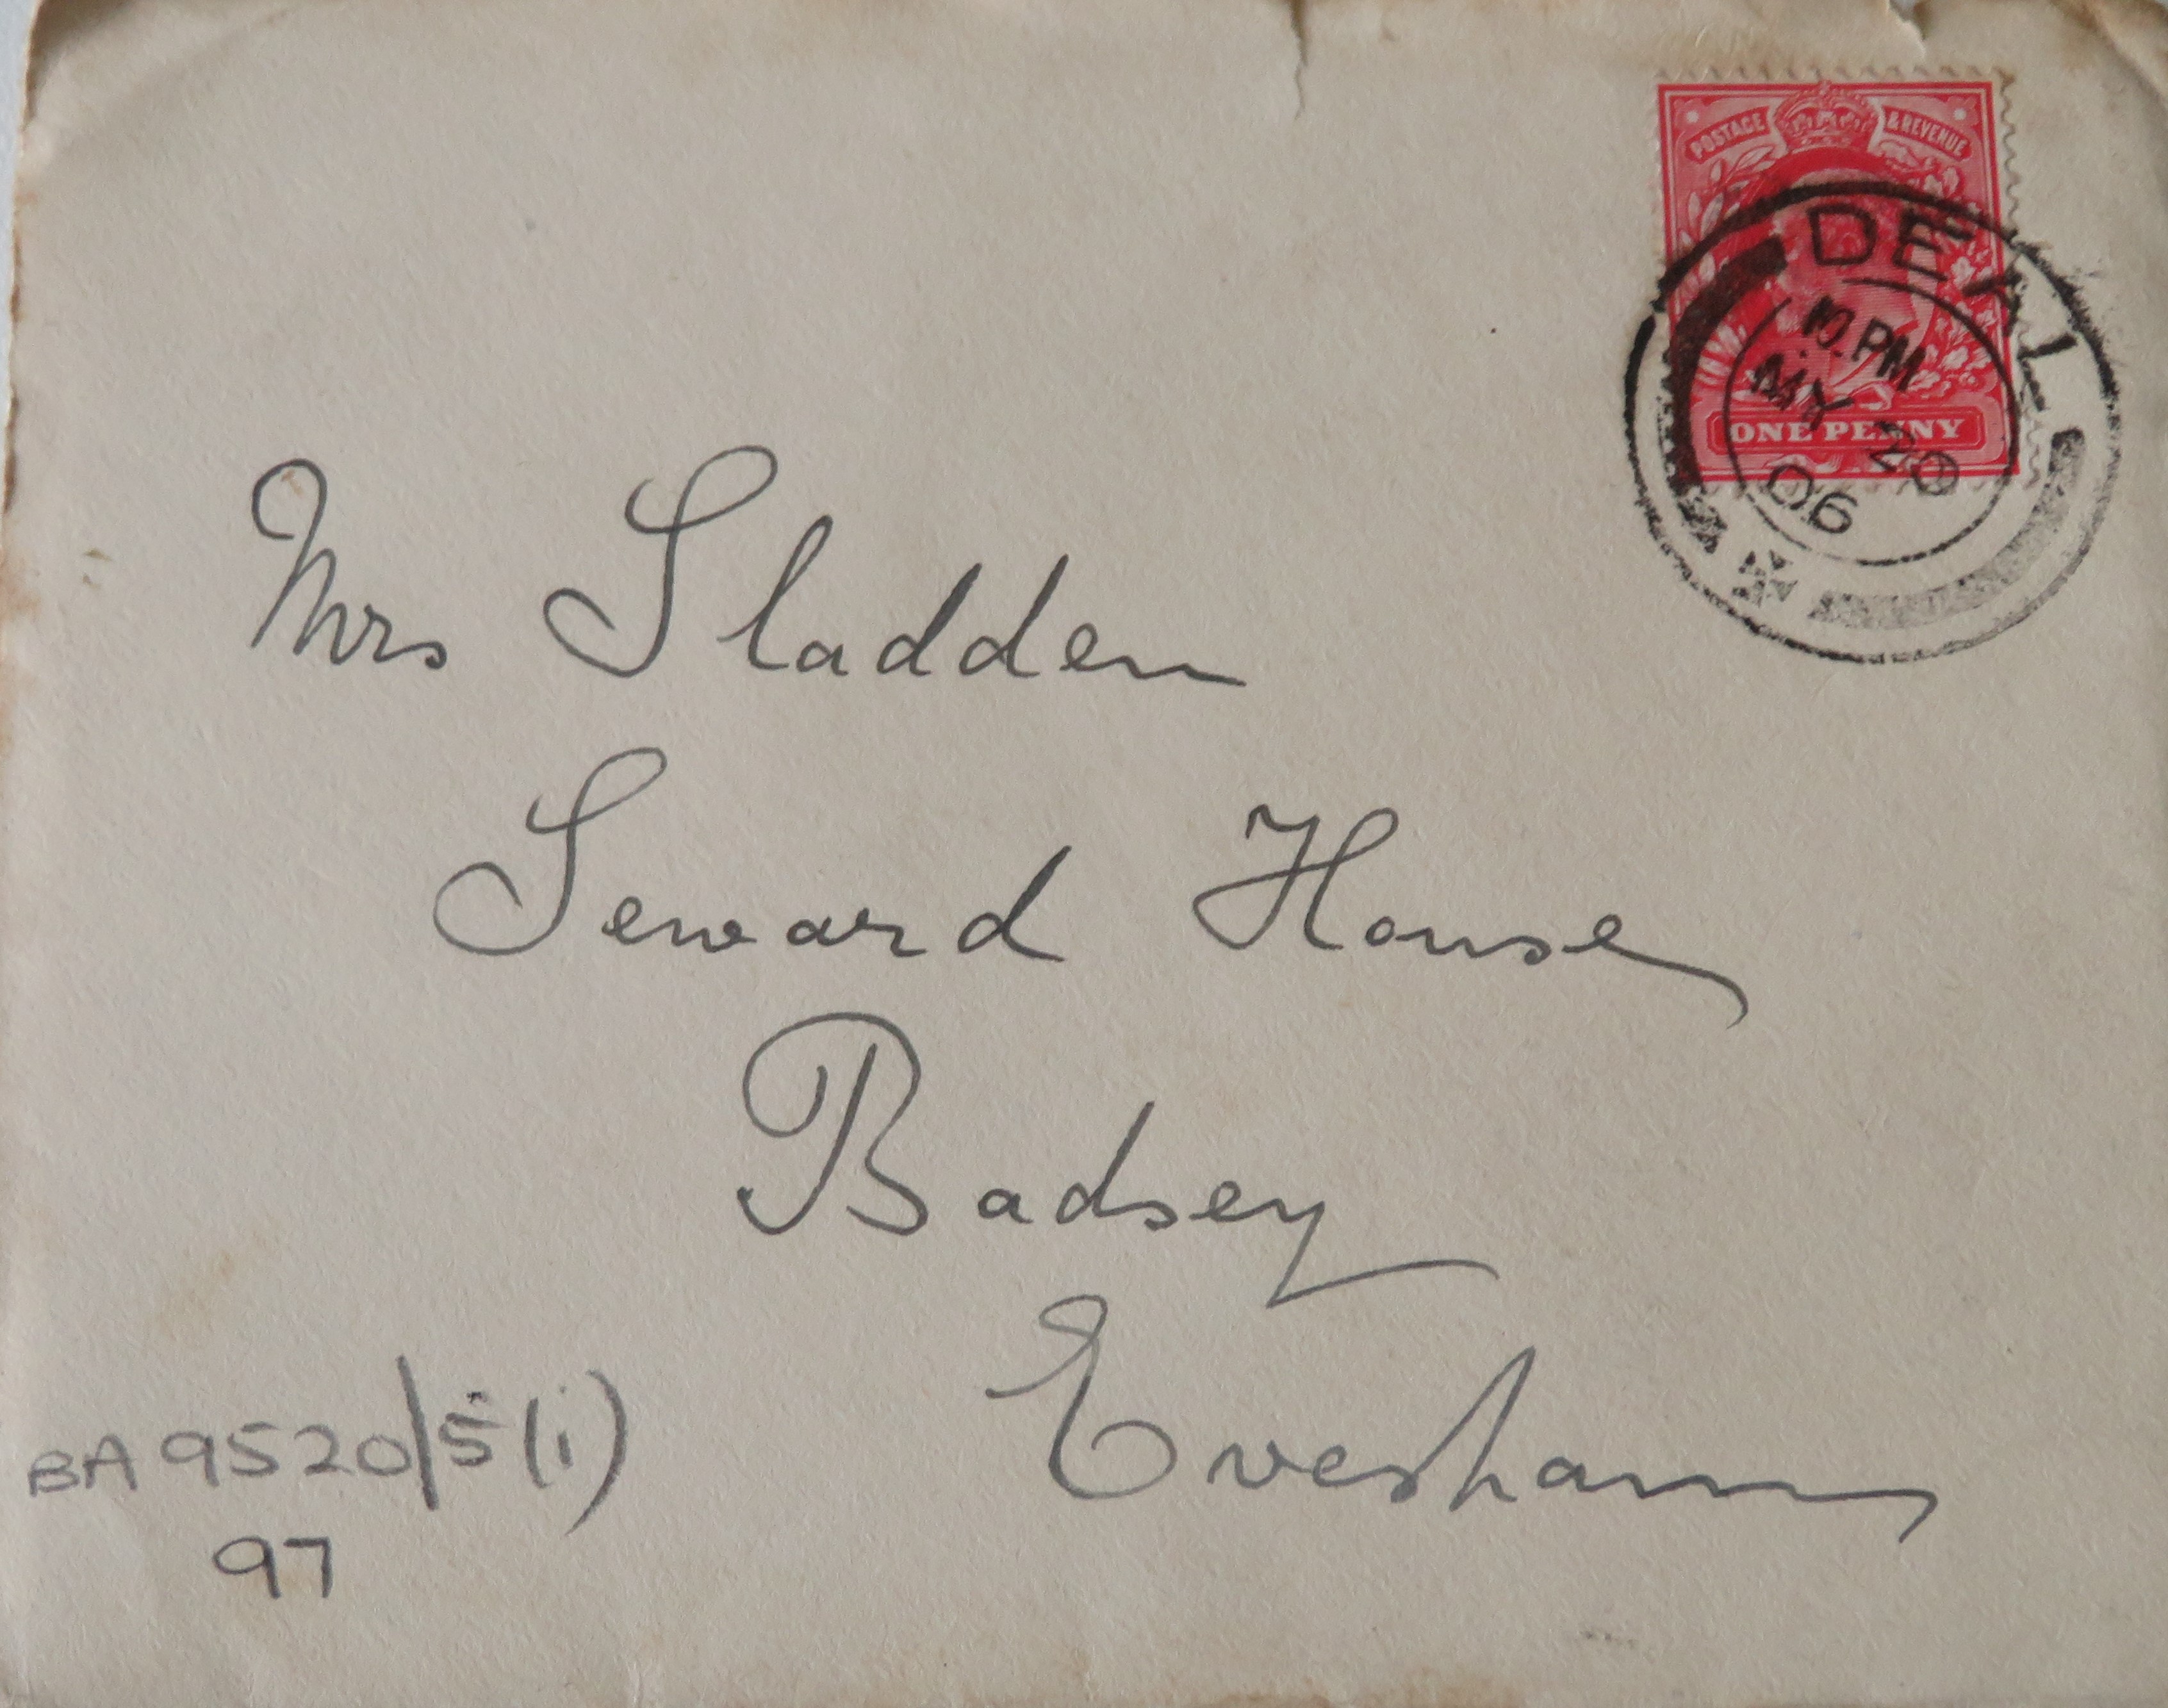 POSTAGE & REVENUE
DEAL
10. PM
MY 20
06
ONE PENNY
Mrs Sladden
Seward House
Badsey
Evesham
BA 9520/5(i)
97